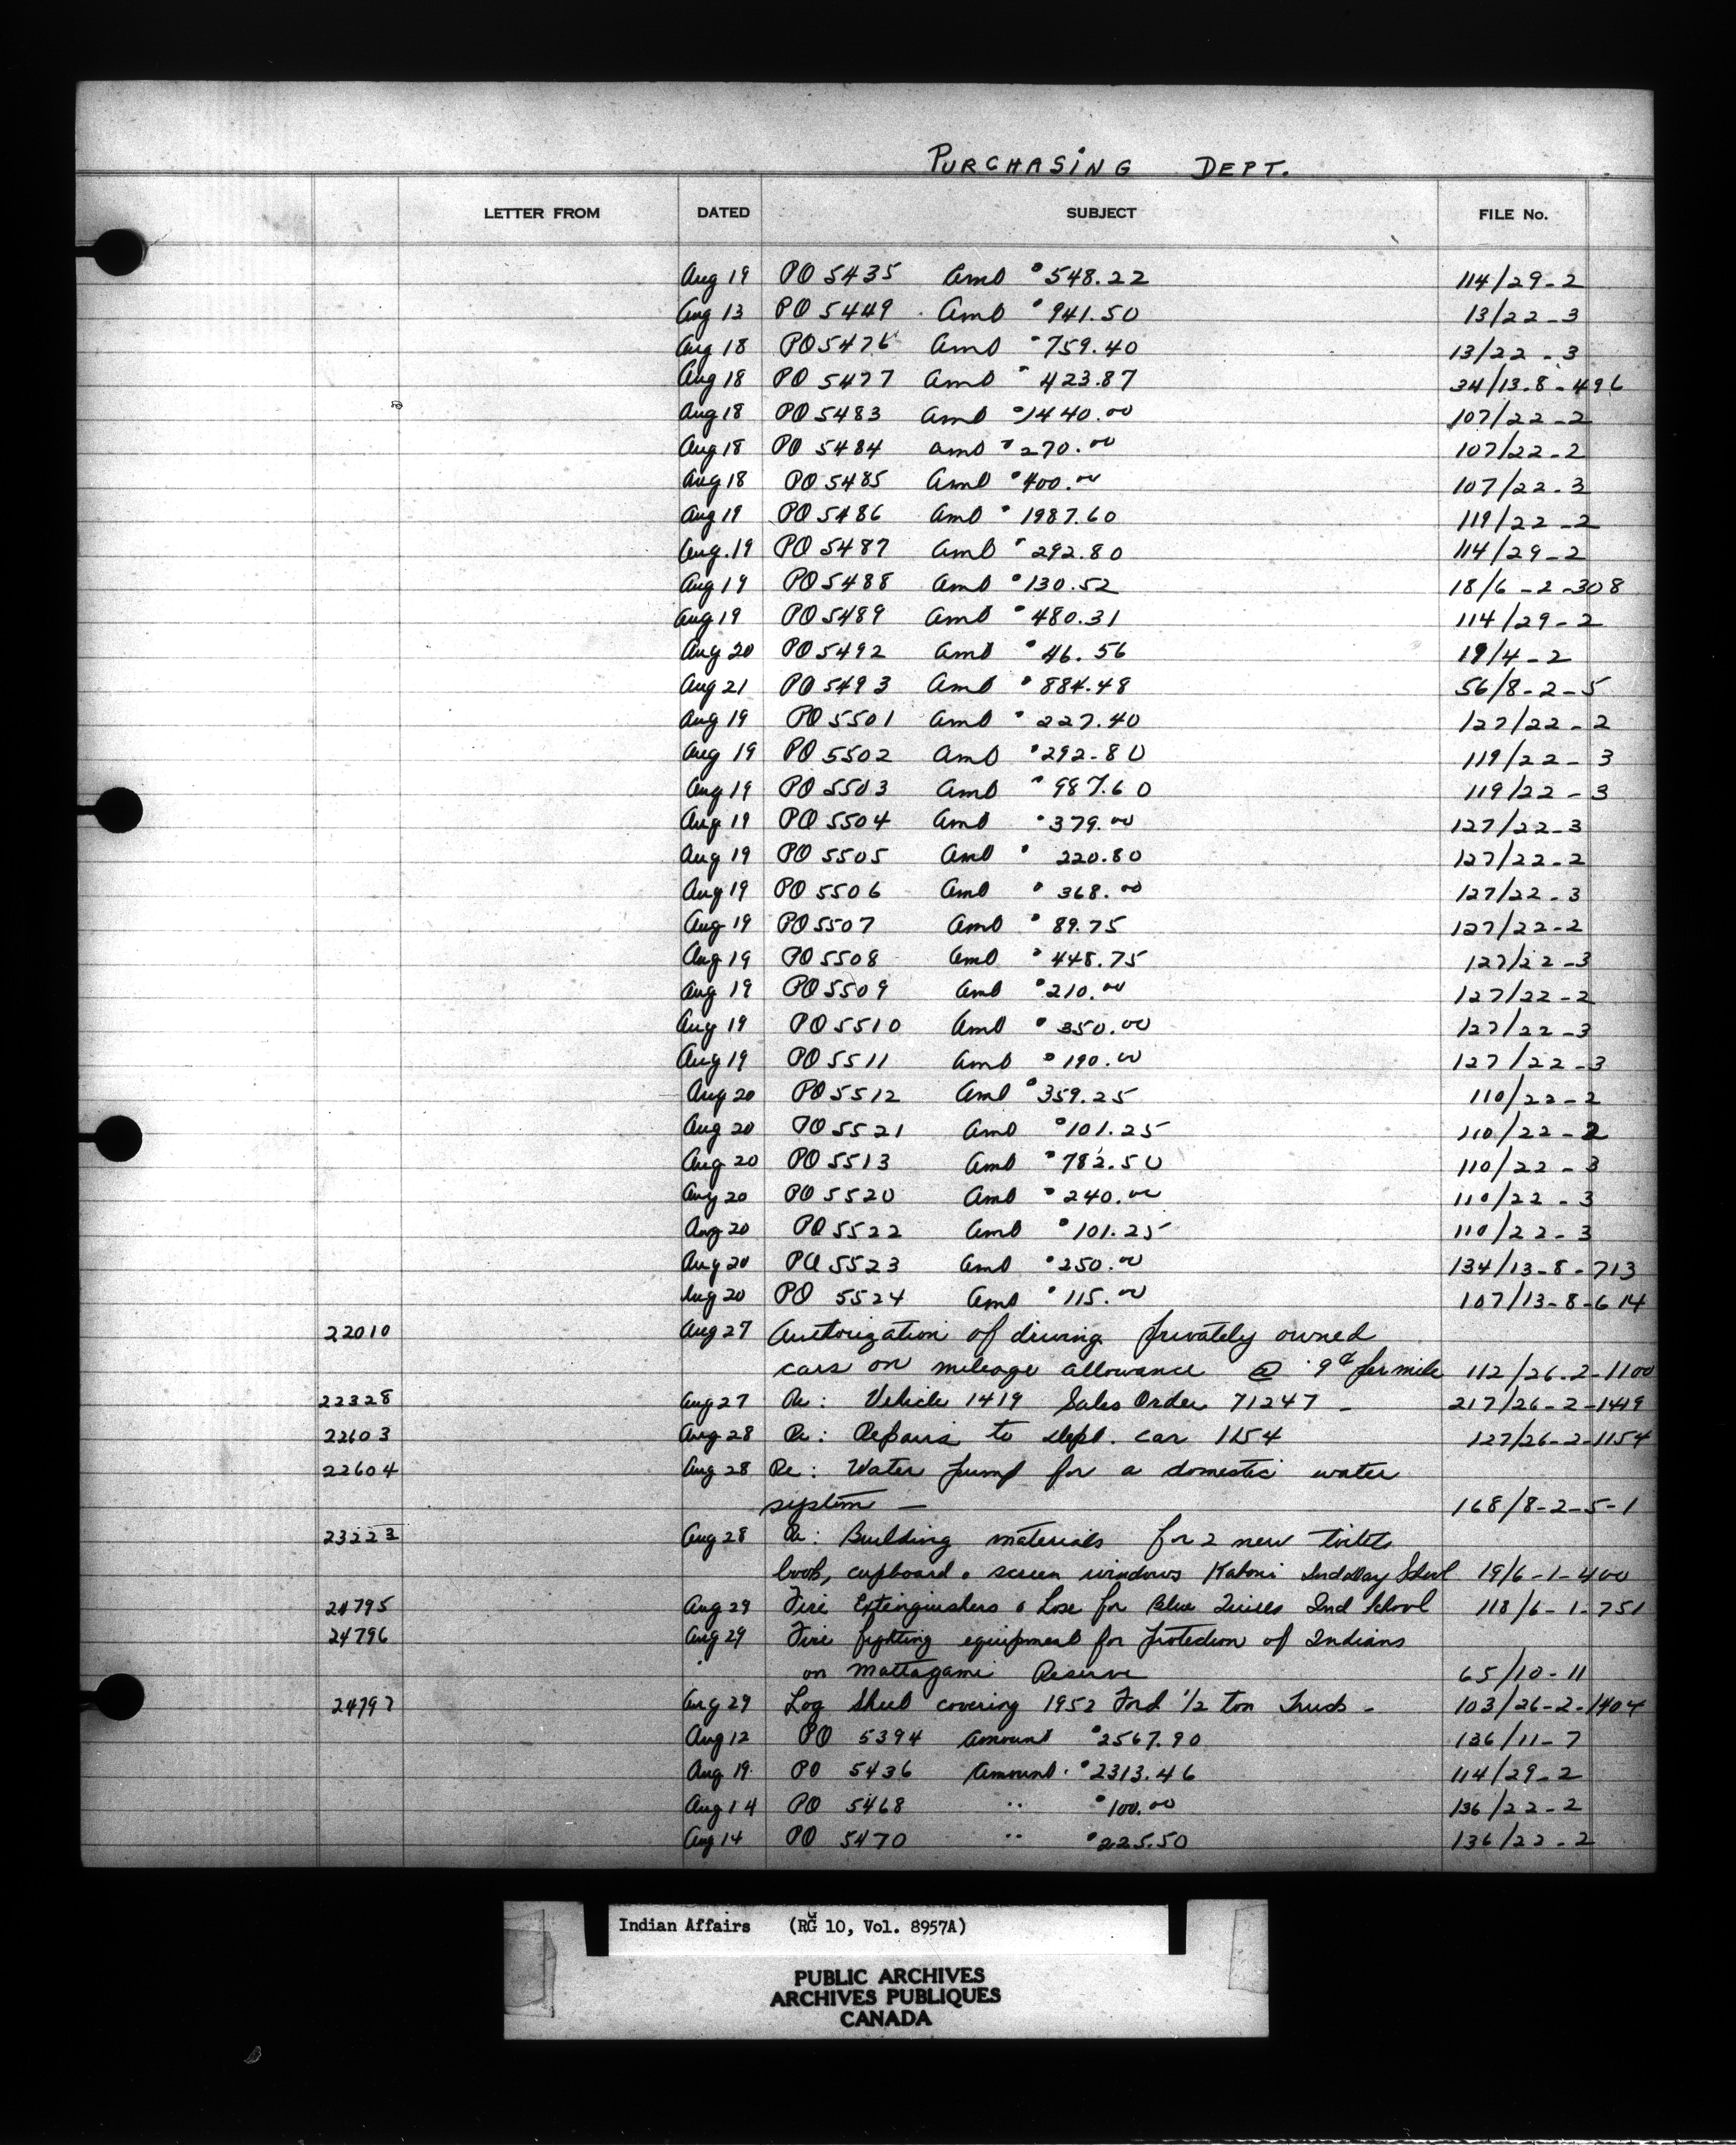 PURCHASING DEPT.
LETTER FROM DATED SUBJECT FILE No.
Aug 19 PO 5435 Amt $548.22 114/29-2
Aug 13 PO 5449 Amt $941.50 13/22-3
Aug 18 PO 5476 Amt $759.40 13/22-3
Aug 18 PO 5477 Amt $423.87 34/13-8-496
Aug 18 PO 5483 Amt $1440.00 107/22-2
Aug 18 PO 5484 Amt $270.00 107/22-2
Aug 18 PO 5485 Amt $400.00 107/22-3
Aug 19 PO 5486 Amt $1987.60 119/22-2
Aug. 19 PO 5487 Amt $292.80 114/29-2
Aug 19 PO 5488 Amt $130.52 18/6-2-308
Aug 19 PO 5489 Amt $480.31 114/29-2
Aug 20 PO 5492 Amt $46.56 19/4-2
Aug 21 PO 5493 Amt $884.48 56/8-2-5
Aug 19 PO 5501 Amt $227.40 127/22-2
Aug 19 PO 5502 Amt $292-80 119/22-3
Aug 19 PO 5503 Amt $987.60 119/22-3
Aug 19 PO 5504 Amt $379.00 127/22-3
Aug 19 PO 5505 Amt $220.80 127/22-2
Aug 19 PO 5506 Amt $368.00 127/22-3
Aug 19 PO 5507 Amt $89.75 127/22-2
Aug 19 PO 5508 Amt $448.75 127/22-3
Aug 19 PO 5509 Amt $210.00 127/22-2
Aug 19 PO 5510 Amt $350.00 127/22-3
Aug 19 PO 5511 Amt $190.00 127/22-3
Aug 20 PO 5512 Amt $359.25 110/22-2
Aug 20 PO 5521 Amt $101.25 110/22-2
Aug 20 PO 5513 Amt $782.50 110/22-3
Aug 20 PO 5520 Amt $240.00 110/22-3
Aug 20 PO 5522 Amt $101.25 110/22-3
Aug 20 PO 5523 Amt $250.00 134/13-8-713
Aug 20 PO 5524 Amt $115.00 107/13-8-614
22010 Aug 27 Authorization of driving privately owned
cars on mileage allowance @ 9¢ per mile 112/26-2-1100
22328 Aug 27 Re: Vehicle 1419 Sales Order 71247 - 217/26-2-1419
22603 Aug 28 Re: Repairs to dept. car 1154 127/26-2-1154
22604 Aug 28 Re: Water pump for a domestic water
system - 168/8-2-5-1
23223 Aug 28 Re: Building materials for 2 new toilet
cupboard & screen windows Kaboni Ind Day School 19/6-1-400
24795 Aug 29 Fire Extinguishers & hose for Blue Quills Ind School 118/6-1-751
24796 Aug 29 Fire fighting equipment for protection of Indians
on Mattagami Reserve 65/10-11
24797 Aug 29 Log Sheet covering 1952 Ford 1/2 ton Truck - 103/26-2-1404
Aug 12 PO 5394 Amount $2567.90 136/11-7
Aug 19 PO 5436 Amount $2313.46 114/29-2
Aug 14 PO 5468 " $100.00 136/22-2
Aug 14 PO 5470 " $225.50 136/22-2
Indian Affairs (RG 10, Vol. 8957A)
PUBLIC ARCHIVES
ARCHIVES PUBLIQUES
CANADA